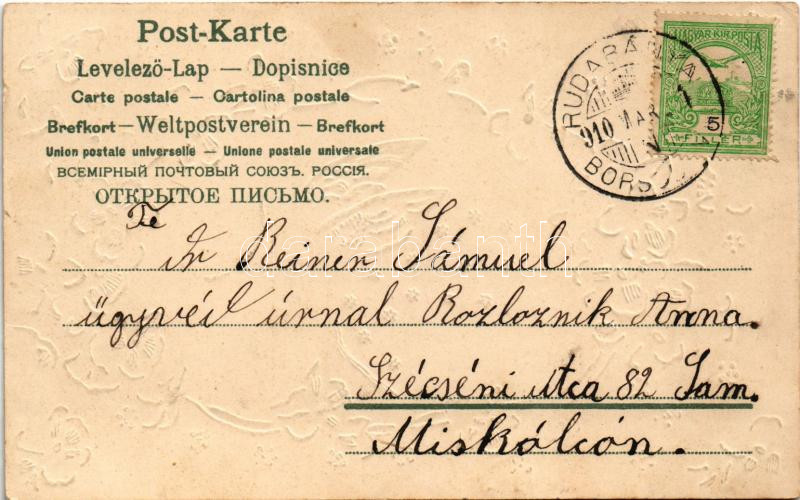 Post-Karte
Levelező-Lap — Dopisnice
Carte postale — Cartolina postale
Brefkort — Weltpostverein — Brefkort
Union postale universelle — Unione postale universale
ВСЕМІРНЫЙ ПОЧТОВЫЙ СОЮЗЪ. РОССІЯ.
ОТКРЫТОЕ ПИСЬМО.
MAGYAR KIR. POSTA
5
FILLER
RUDABÁNYA
910 MAR
BORS
Te
Dr Reiner Sámuel
ügyvéd úrnal Rozloznik Anna.
Szécséni utca 82 Sam.
Miskólcón.
darabanth